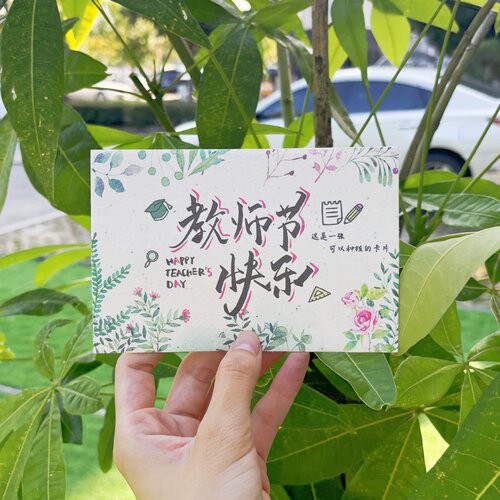 教师节
快乐
HAPPY
TEACHER'S
DAY
这是一张
可以种植的卡片